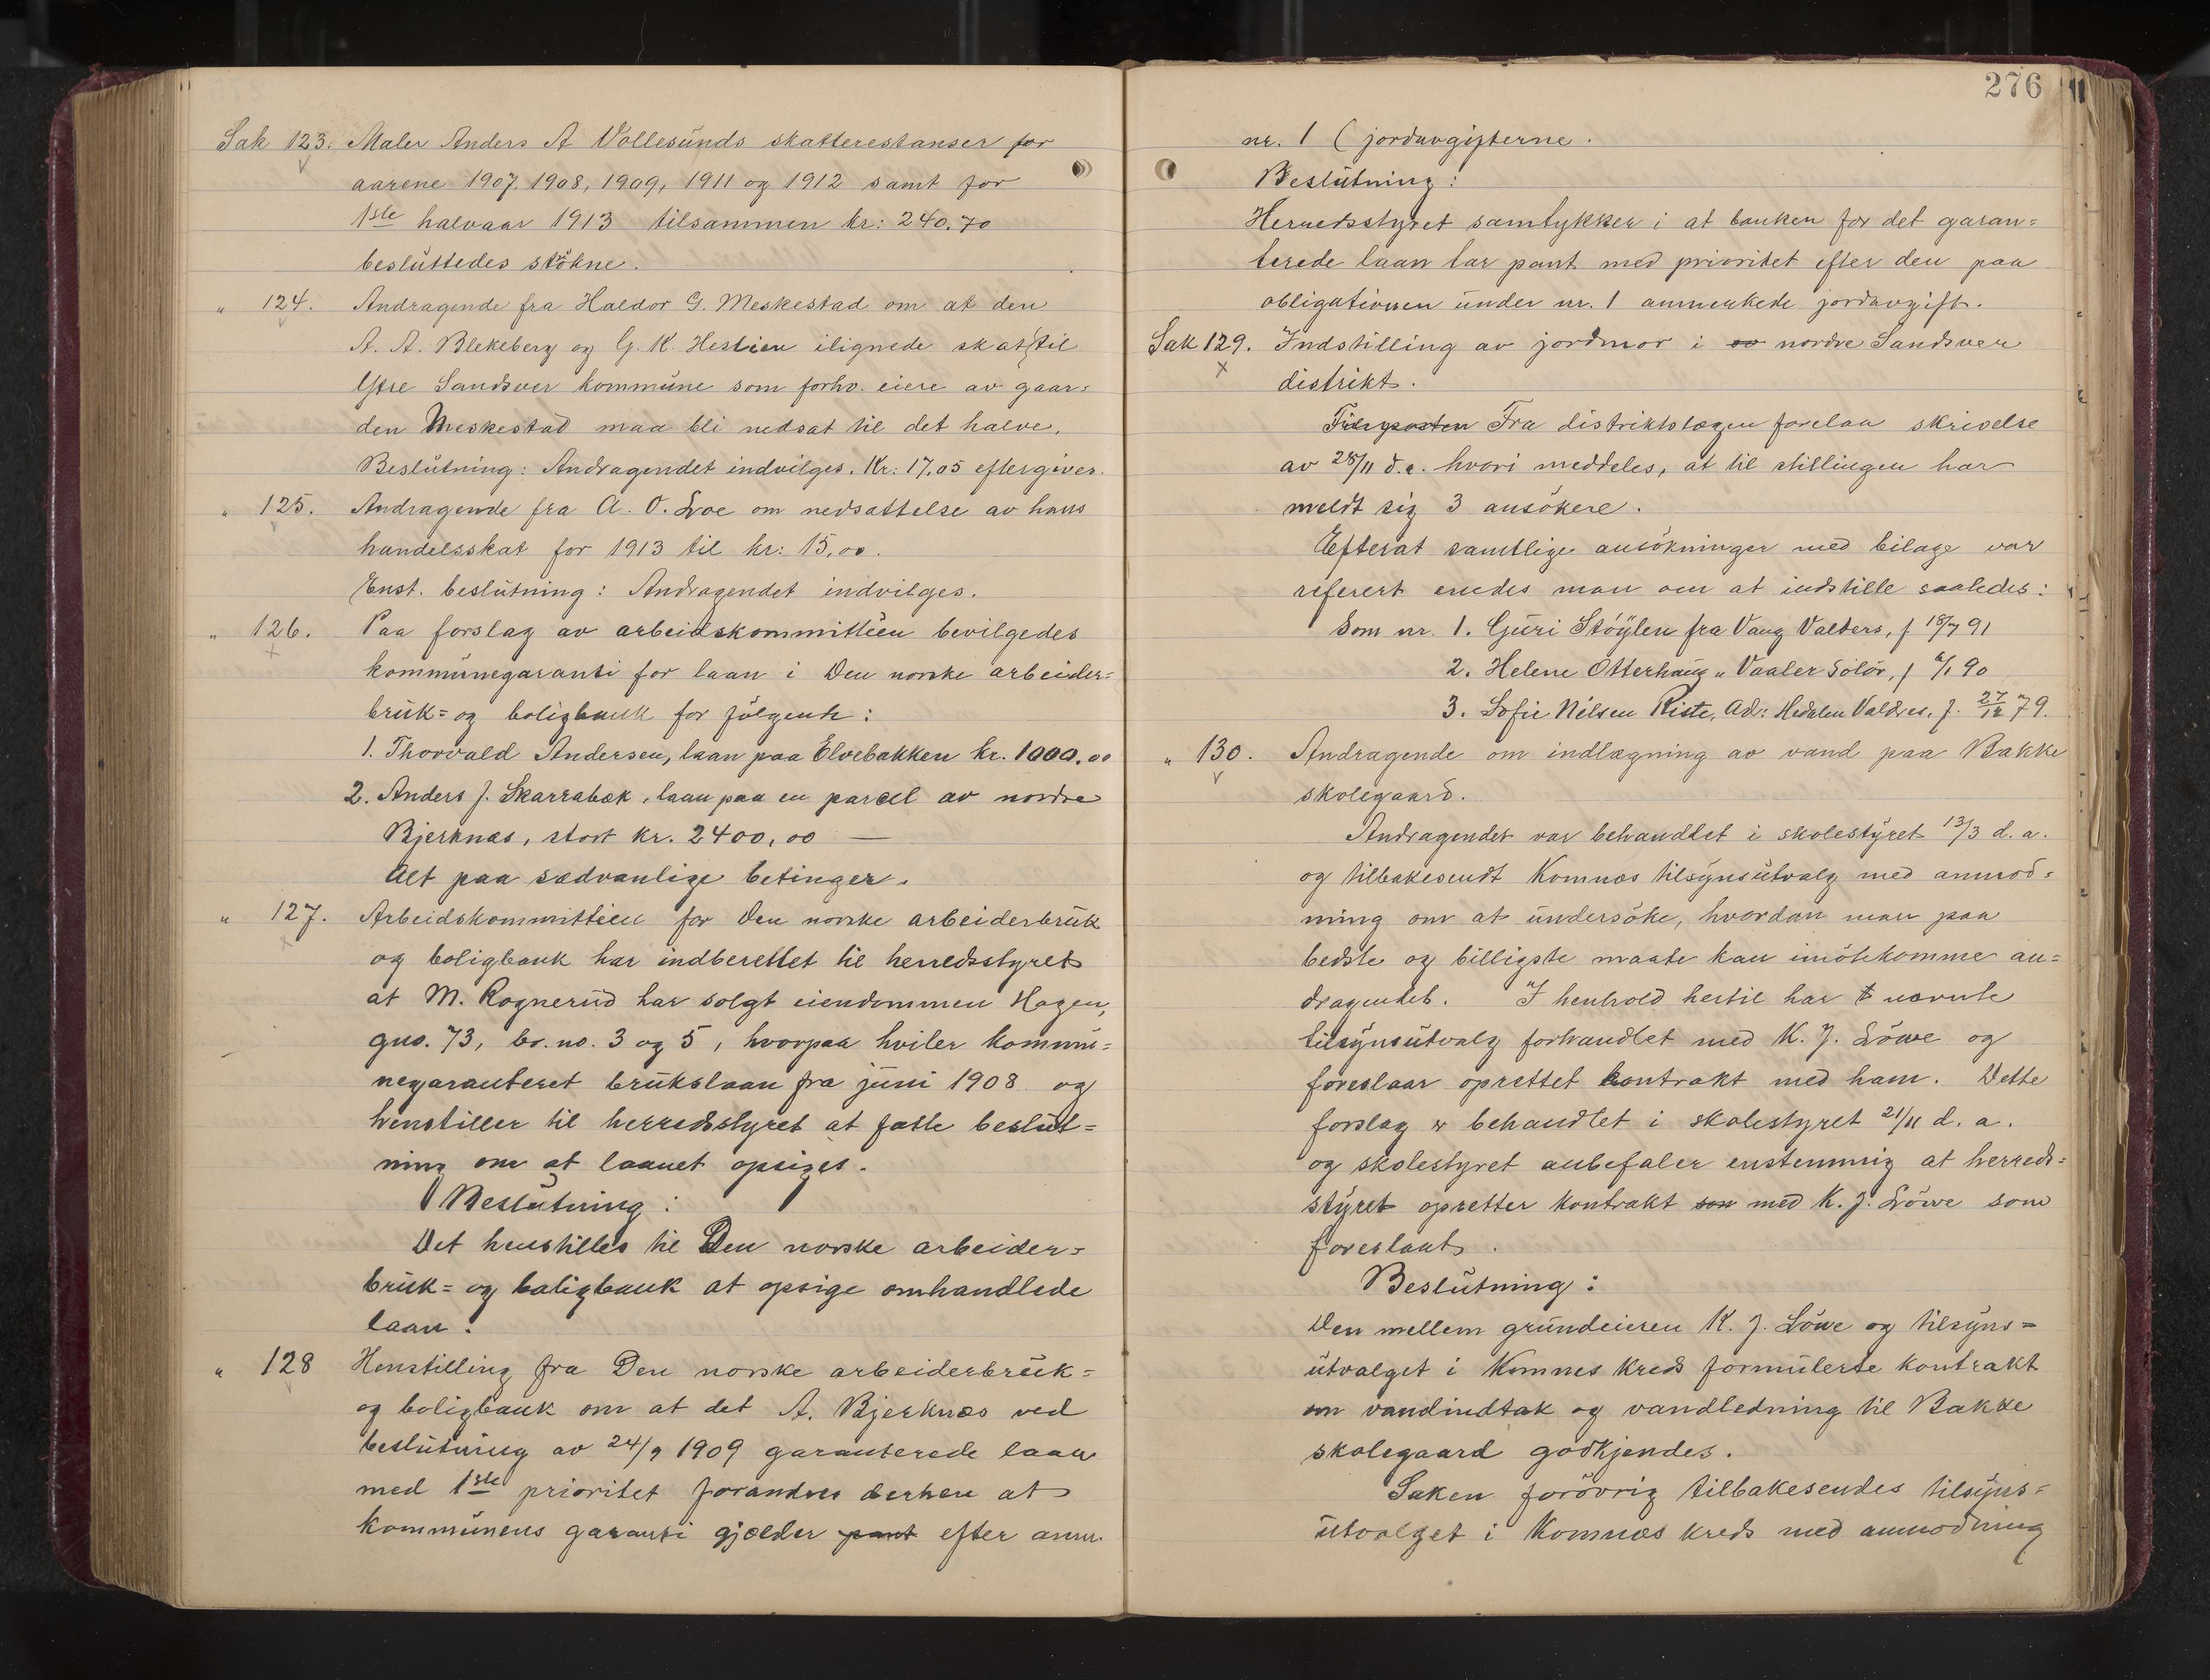 Sak 123. Maler Anders A Vollesunds skatterestanser for
aarene 1907. 1908, 1909, 1911 og 1912 samt for
1ste halvaar 1913 tilsammen kr: 240.70
besluttedes strökne.
" 124. Andragende fra Haldor G. Meskestad om at den
A. A. Blekeberg og G. K. Hestien ilignede skat til
Ytre Sandsver kommune som forhv. eiere av gaar=
den Meskestad maa bli nedsat til det halve.
Beslutning: Andragendet indvilges. Kr: 17.05 eftergives.
" 125. Andragende fra A. O. Loe om nedsættelse av hans
handelsskat for 1913 til kr: 15,00.
Enst. beslutning: Andragendet indvilges.
" 126. Paa forslag av arbeidskommitteen bevilgedes
kommunegaranti for laan i Den norske arbeider=
bruk= og boligbank for følgende:
1. Thorvald Andersen, laan paa Elvebakken kr. 1000.00
2. Anders J. Skarrabæk, laan paa en parcel av nordre
Bjerknæs, stort kr. 2400,00 —
Alt paa sædvanlige betinger.
" 127. Arbeidskommitteen for Den norske arbeiderbruk
og boligbank har indberettet til herredsstyret
at M. Rognerud har solgt eiendommen Hagen,
gno. 73, br. no. 3 og 5, hvorpaa hviler kommu=
negaranteret brukslaan fra juni 1908 og
henstiller til herredsstyret at fatte beslut=
ning om at laanet opsiges.
Beslutning:
Det henstilles til Den norske arbeider=
bruk= og boligbank at opsige omhandlede
laan.
" 128 Henstilling fra Den norske arbeiderbruk=
og boligbank om at det A. Bjerknæs ved
beslutning av 24/9 1909 garanterede laan
med 1ste prioritet forandres derhen at
kommunens garanti gjælder pant efter anm.
276
nr. 1 (jordavgifterne.
Beslutning:
Herredsstyret samtykker i at banken for det garan=
terede laan tar pant med prioritet efter den paa
obligationen under nr. 1 anmerkede jordavgift.
Sak 129. Indstilling av jordmor i ov nordre Sandsver
distrikt.
Fra distriktslægen forelaa skrivelse
av 28/11 d.a. hvori meddeles, at til stillingen har
meldt sig 3 ansökere.
Efterat samtlige ansökninger med bilage var
referert enedes man om at indstille saaledes:
Som nr. 1. Guri Stöylen fra Vang Valders, f 18/7 91
2. Helene Otterhaug " Vaaler Solör, f 6/1 90
3. Sofie Nilsen Riste, Adr: Hedalen Valdres, f. 27/12 79.
" 130. Andragende om indlægning av vand paa Bakke
skolegaard.
Andragendet var behandlet i skolestyret 13/3 d. a.
og tilbakesendt Komnæs tilsynsutvalg med anmod=
ning om at undersöke, hvordan man paa
bedste og billigste maate kan imötekomme an=
dragendet. I henhold hertil har t nævnte
tilsynsutvalg forhandlet med K. J. Löwe og
foreslaar oprettet kontrakt med ham. Dette
forslag er behandlet i skolestyret 21/11 d. a.
og skolestyret anbefaler enstemmig at herreds=
styret opretter kontrakt som med K. J. Löwe som
foreslaat.
Beslutning:
Den mellem grundeieren K. J. Löwe og tilsyns=
utvalget i Komnes kreds formulerte kontrakt
om vandindtak og vandledning til Bakke
skolegaard godkjendes.
Saken forövrig tilbakesendes tilsyns=
utvalget i Komnæs kreds med anmodning